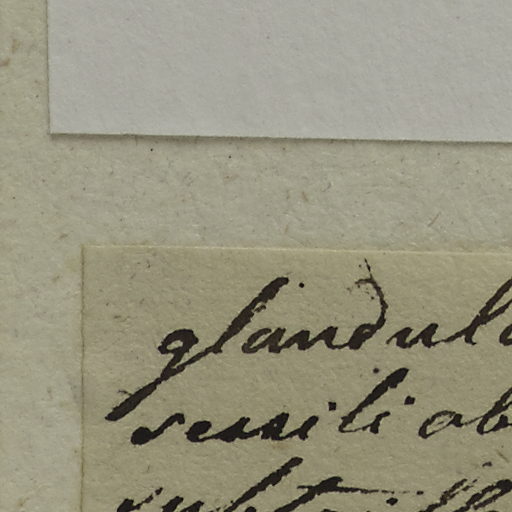 glandul
sessili ob